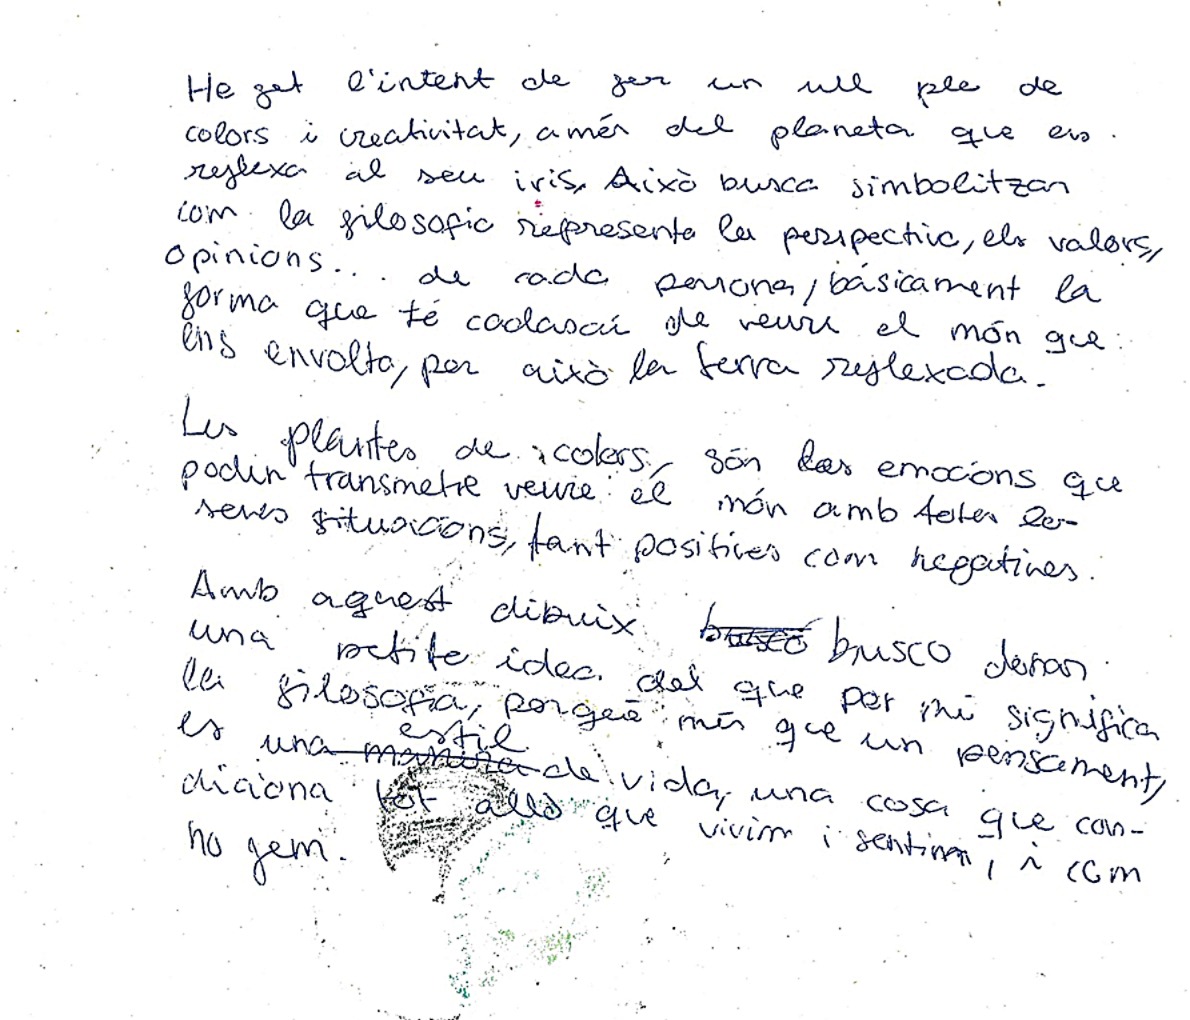 He fet l'intent de fer un ull ple de
colors i creativitat, a més del planeta que es
reflexa al seu iris, Això busca simbolitzar
com la filosofia representa la perspectiva, els valors,
opinions... de cada persona, bàsicament la
forma que té cadascú de veure el món que
ens envolta, per això la terra reflexada.
Les plantes de colors, són les emocions que
poden transmetre veure el món amb totes les
seves situacions, tant positives com negatives.
Amb aquest dibuix busco busco donar
una petita idea del que per mi significa
la filosofia, perquè més que un pensament,
es una manera estil de vida, una cosa que con-
diciona tot allò que vivim i sentim, i com
ho fem.